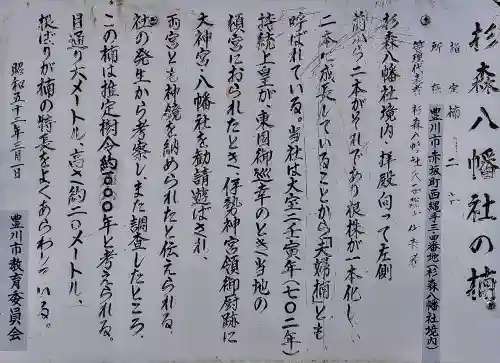 杉森八幡社の楠
指定 楠 二本
所在 豊川市赤坂町西縄手三四番地(杉森八幡社境内)
管理代表者 杉森八幡社
杉森八幡社境内、拝殿向って左側
二本がそれであり根株が一本化し、
二本に成長していることから「夫婦楠」とも
呼ばれている。当社は大宝二壬寅年(七〇二年)
持統上皇が、東国御巡幸のとき、当地の
頓宮におられたとき、伊勢神宮領御厨跡に
大神宮、八幡社を勧請遊ばされ、
両宮とも神鏡を納められたと伝えられる。
社の発生から考察し、また調査したところ、
この楠は推定樹令約1000年と考えられる。
目通り六メートル、高さ約二〇メートル、
根ばりが楠の特長をよくあらわしている。
昭和五十三年三月一日
豊川市教育委員会